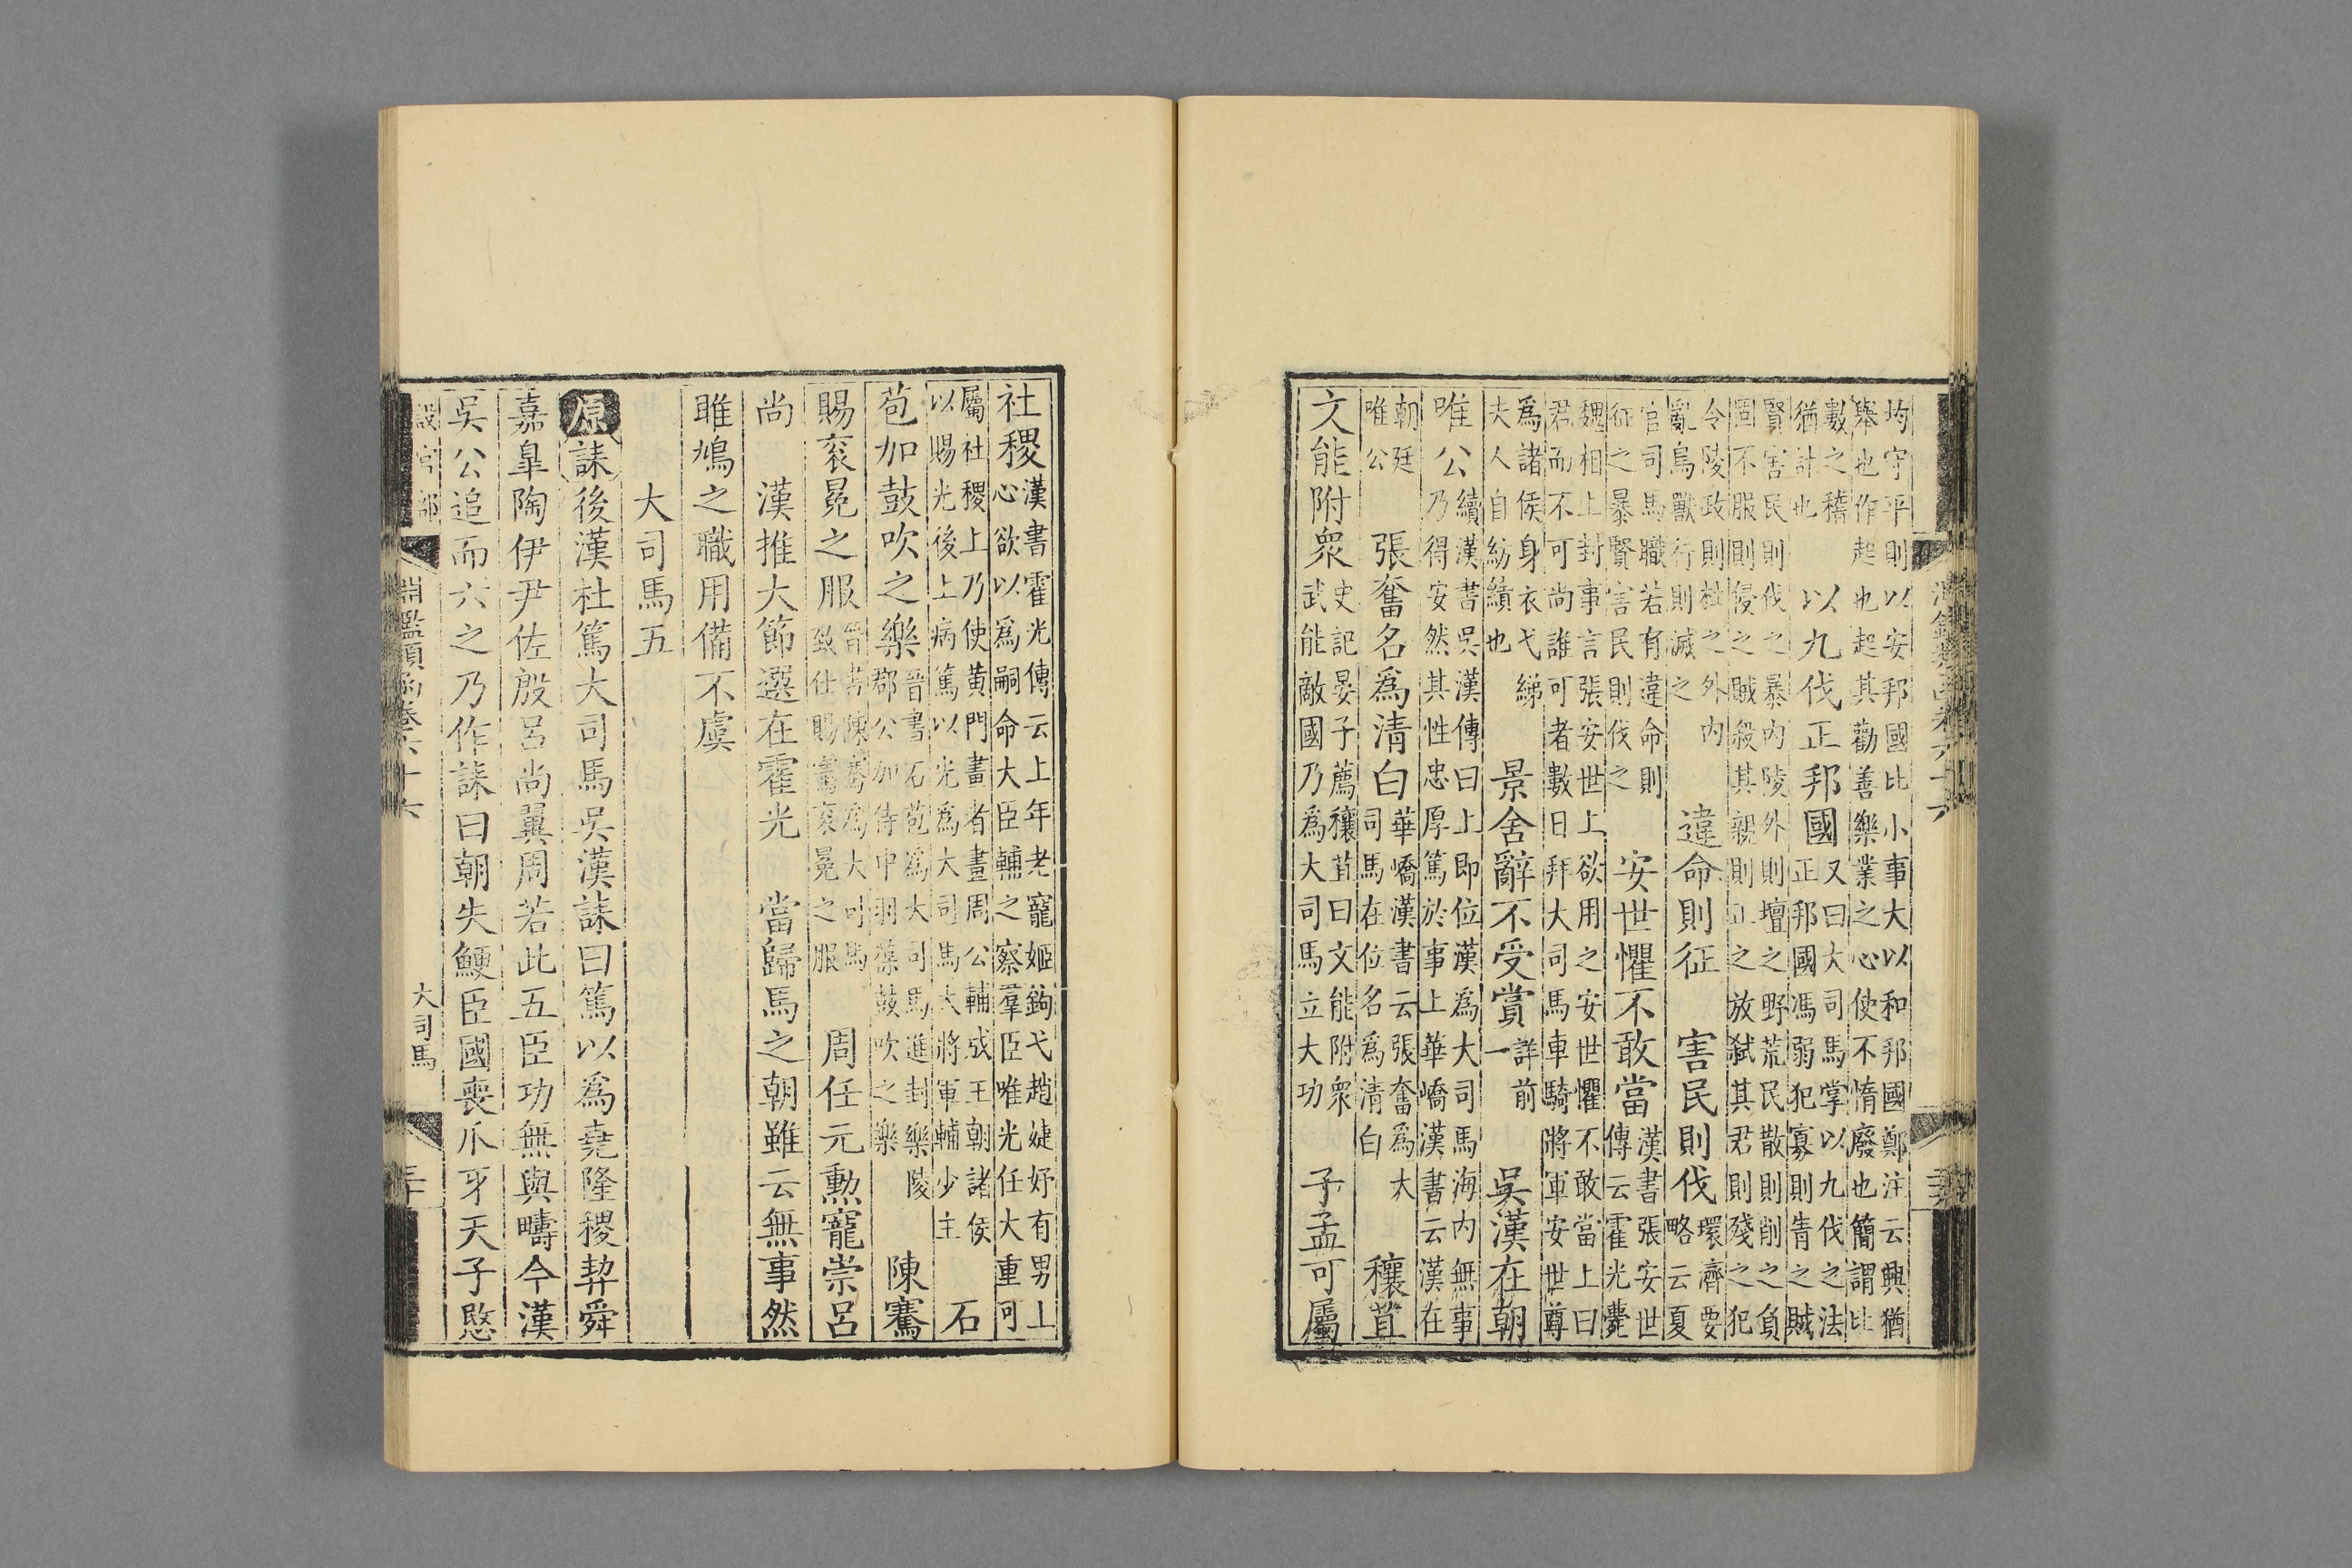 均守平則以安邦國比小事大以和邦國鄭注云興猶
舉也作起也起其勸善樂業之心使不惰廢也簡謂比
數之稽
猶計也
以九伐正邦國
又曰大司馬掌以九伐之法
正邦國馮弱犯寡則眚之賊
賢害民則伐之暴內陵外則壇之野荒民散則削之負
固不服則侵之賊殺其親則正之放弑其君則殘之犯
令陵政則杜之外內
亂鳥獸行則滅之
違命則征　害民則伐
環濟要
略云夏
官司馬職若有違命則
征之暴賢害民則伐之
安世懼不敢當
漢書張安世
傳云霍光薨
魏相上封事言張安世上欲用之安世懼不敢當上曰
君而不可尚誰可者數日拜大司馬車騎將軍安世尊
爲諸侯身衣弋綈
夫人自紡績也
景舍辭不受賞
詳前
一
吳漢在朝
唯公
續漢書吳漢傳曰上即位漢爲大司馬海內無事
乃得安然其性忠厚篤於事上華嶠漢書云漢在
朝廷
唯公
張奮名爲清白
華嶠漢書云張奮爲大
司馬在位名爲清白
穰苴
文能附衆
史記晏子薦穰苴曰文能附衆
武能敵國乃爲大司馬立大功
子孟可屬
社稷
漢書霍光傳云上年老寵姬鉤弋趙婕妤有男上
心欲以爲嗣命大臣輔之察羣臣唯光任大重可
屬社稷上乃使黃門畫者畫周公輔成王朝諸侯
以賜光後上病篤以光爲大司馬大將軍輔少主
石
苞加鼓吹之樂
晉書石苞爲大司馬進封樂陵
郡公加侍中羽葆鼓吹之樂
陳騫
賜袞冕之服
晉書陳騫爲大司馬
致仕賜袞冕之服
周任元勳寵崇呂
尚　漢推大節選在霍光　當歸馬之朝雖云無事然
雎鳩之職用備不虞
大司馬五
原誄後漢杜篤大司馬吳漢誄曰篤以爲堯隆稷契舜
嘉臯陶伊尹佐殷呂尚翼周若此五臣功無與疇今漢
吳公追而六之乃作誄曰朝失鯁臣國喪爪牙天子愍
設官部
淵鑑類函卷六十六
大司馬